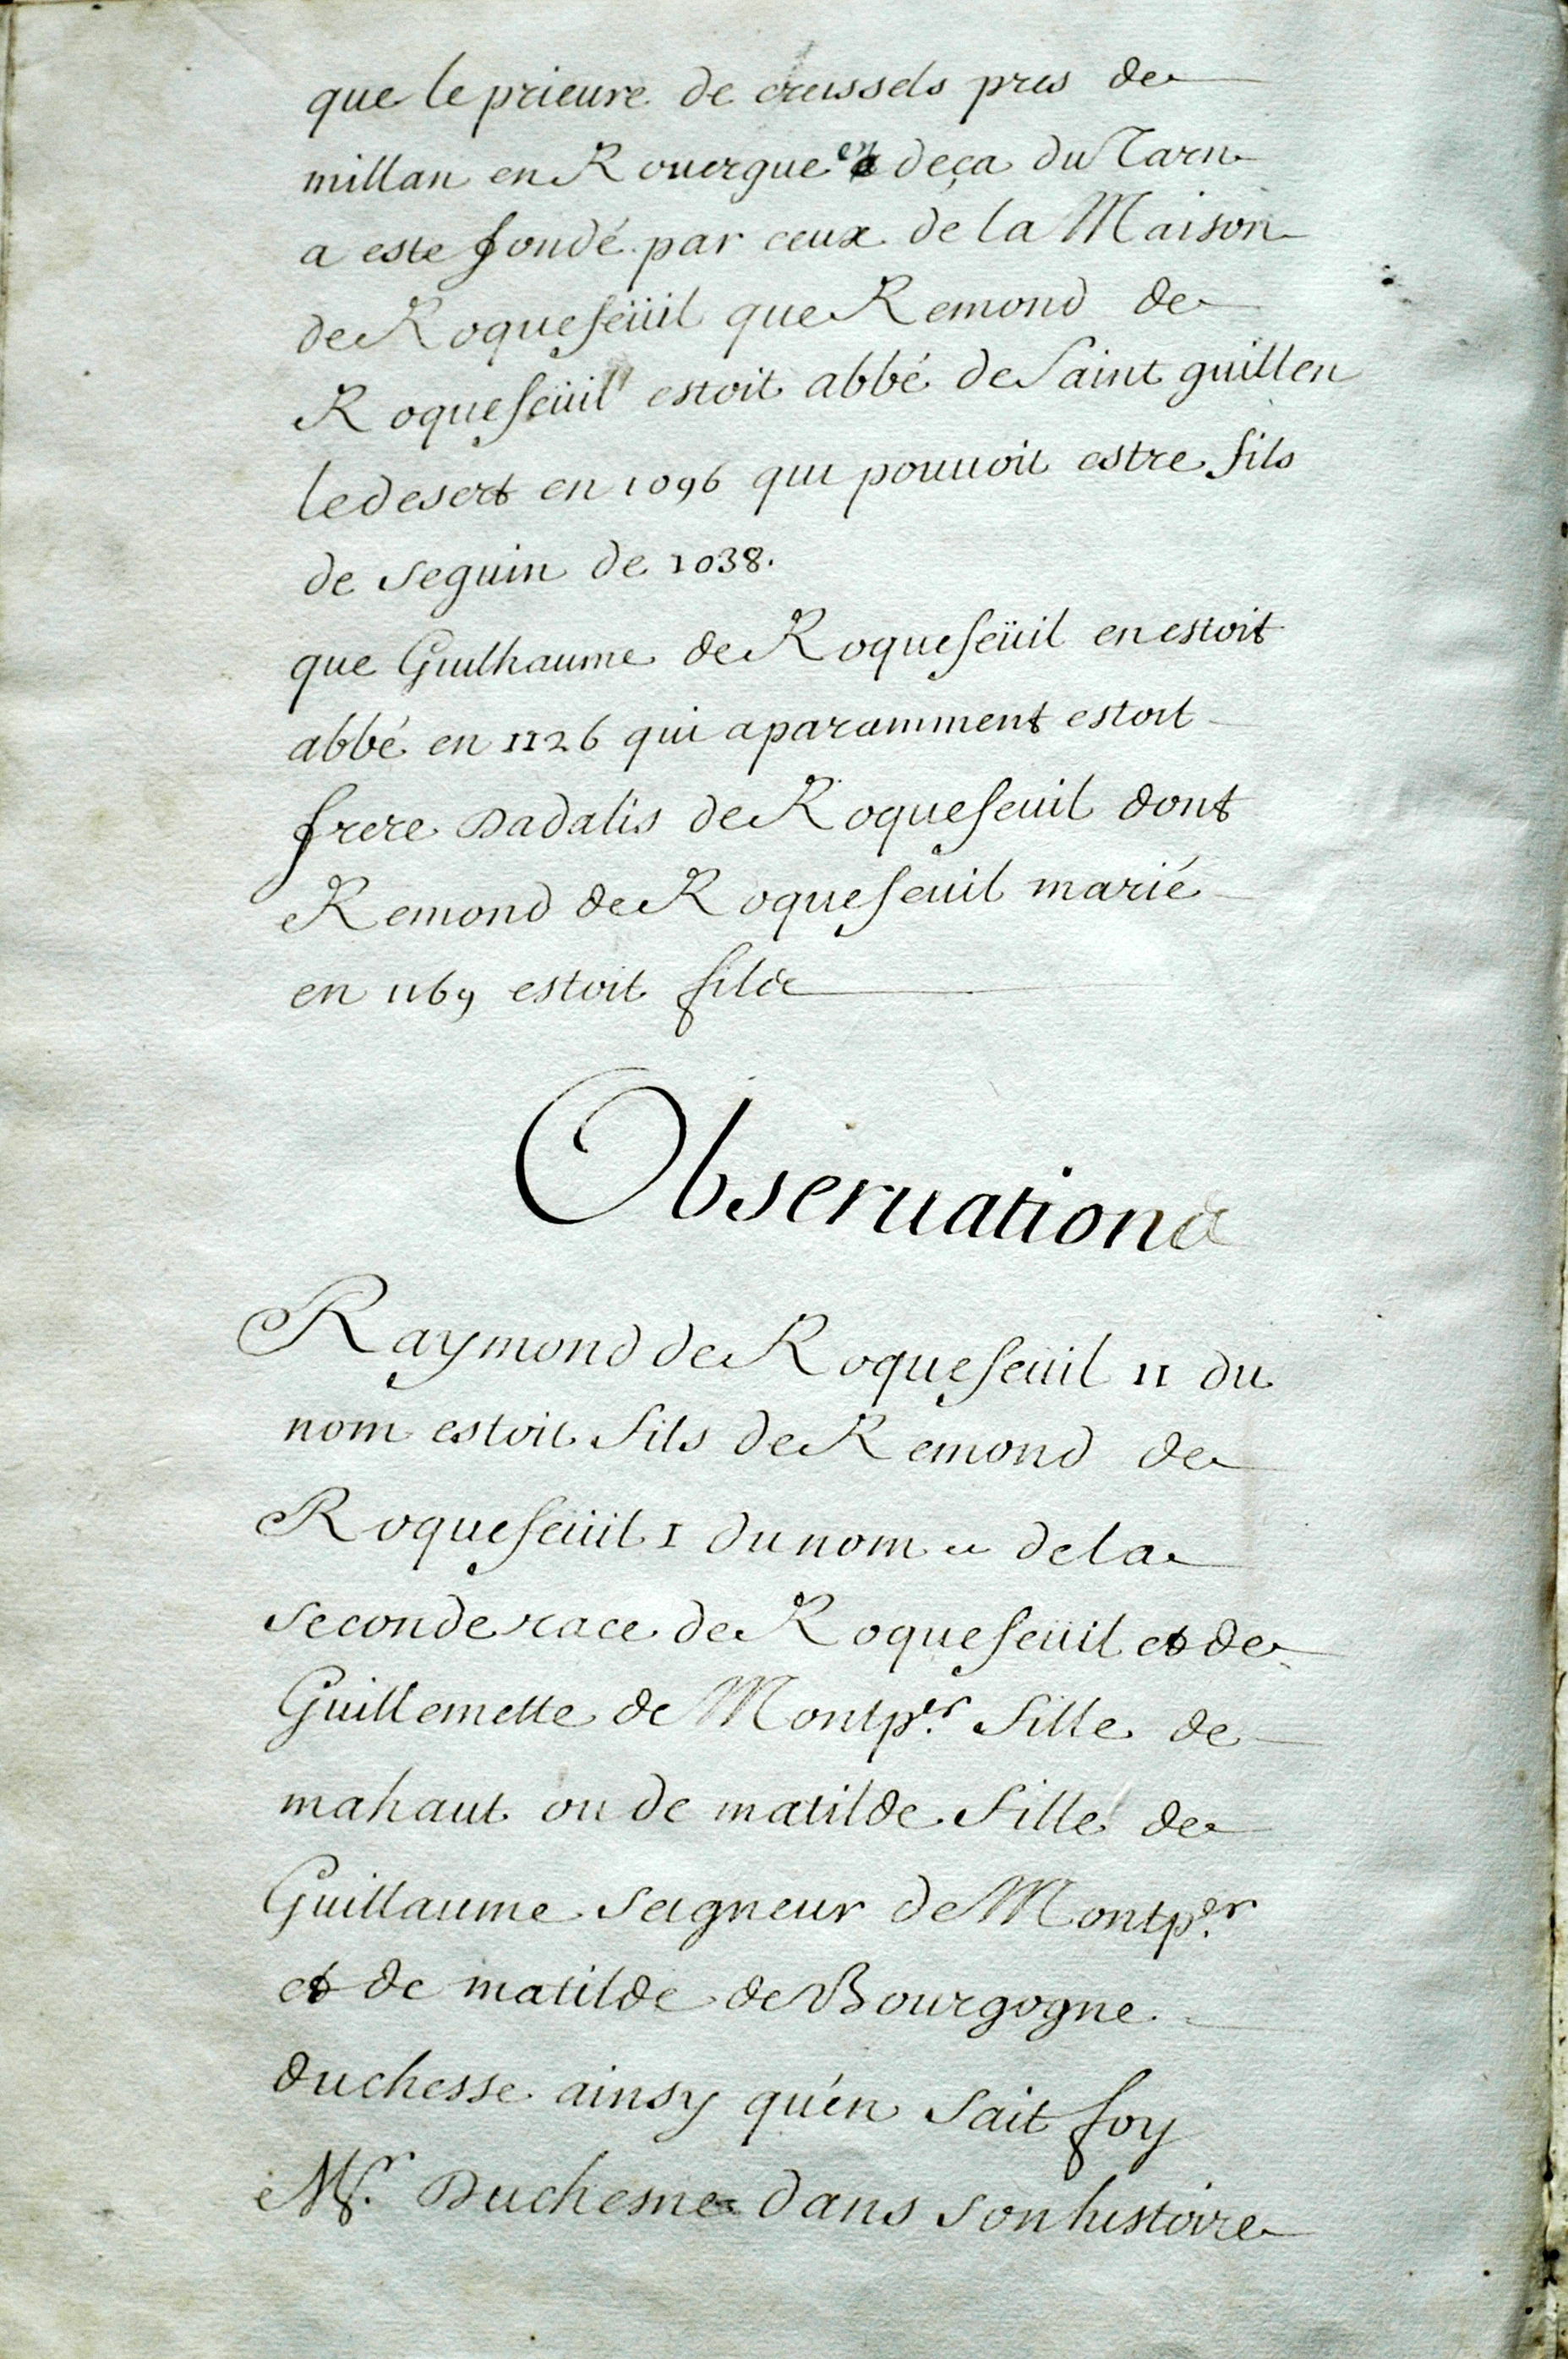 que le prieure de creussels pres de
millan en Rouergue en deça du Tarn
a este fondé par ceux de la Maison
de Roquefeüil que Remond de
Roquefeüil estoit abbé de Saint guillen
le desert en 1096 qui pouuoit estre fils
de seguin de 1038.
que Guilhaume de Roquefeüil en estoit
abbé en 1126 qui aparamment estoit
frere Dadalis de Roquefeuil dont
Remond de Roquefeuil marié
en 1169 estoit fils
Obseruations
Raymond de Roquefeuil II du
nom estoit fils de Remond de
Roquefeüil I du nom de la
seconde race de Roquefeüil et de
Guillemette de Montp.er fille de
mahaut ou de matilde fille de
Guillaume seigneur de Montp.er
et de matilde de Bourgogne
duchesse ainsy qu'en fait foy
Mr. Duchesne dans son histoire